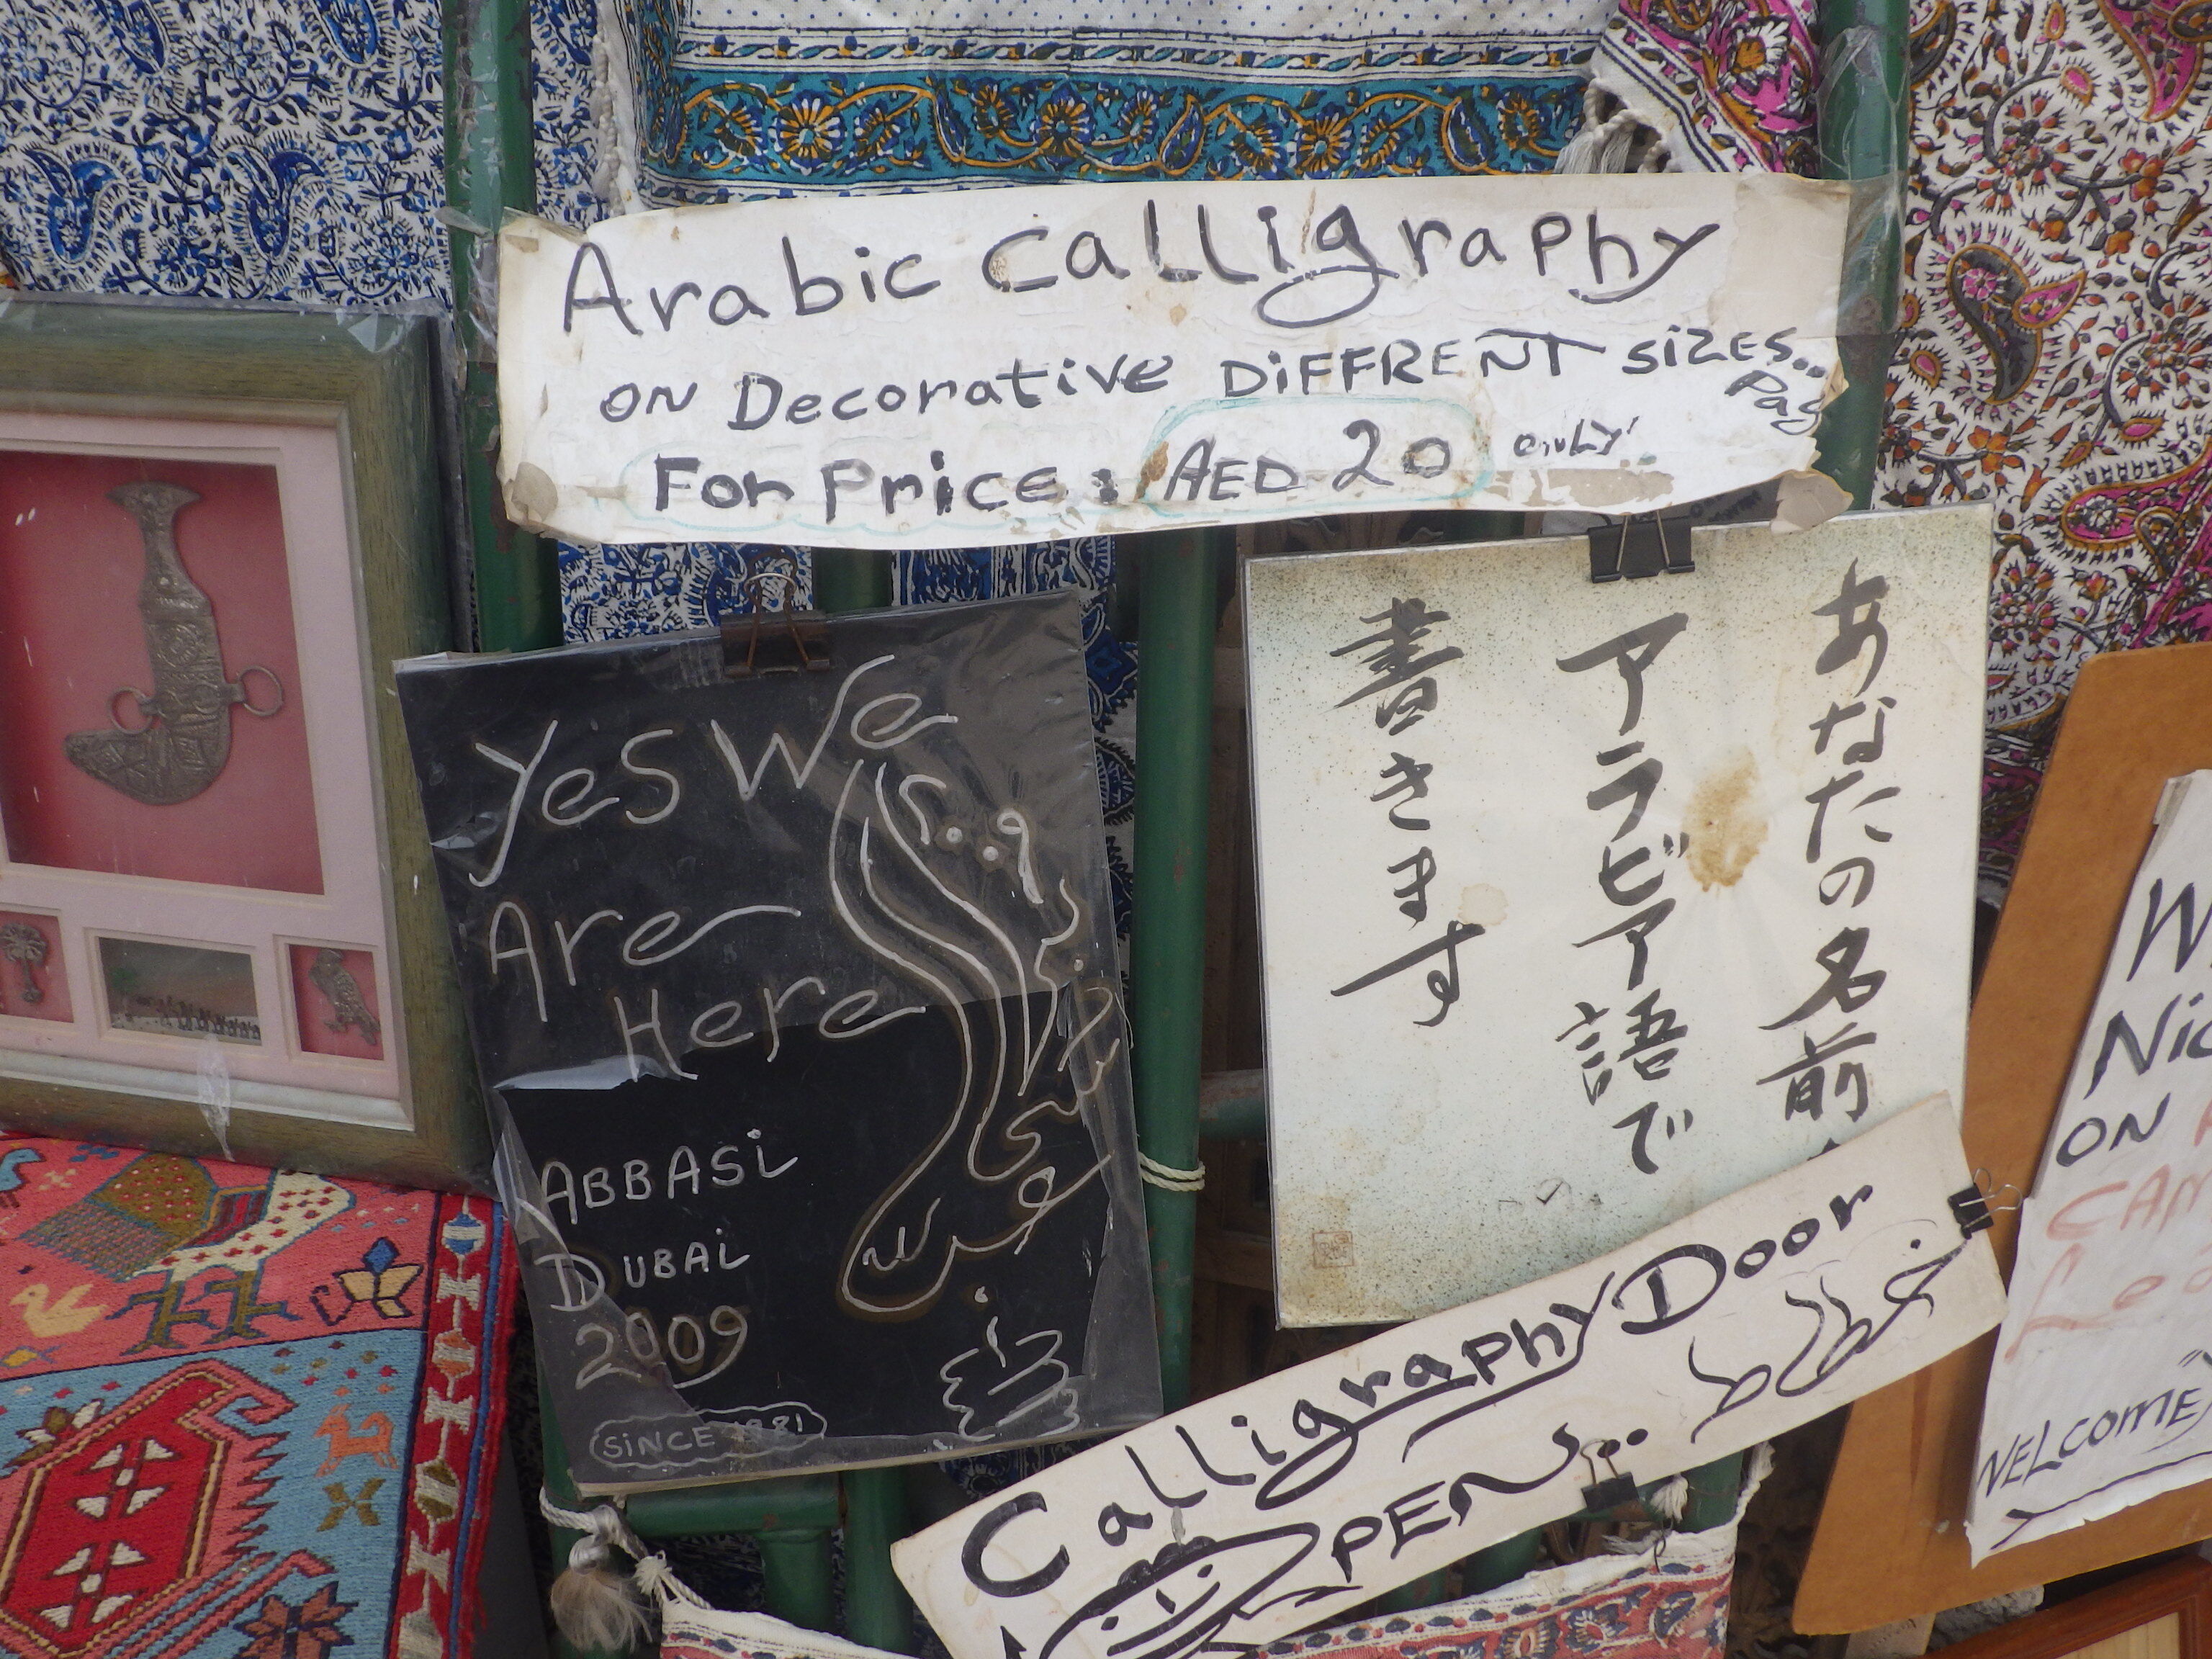 Arabic Calligraphy
ON Decorative DiFFRENT SiZES...
For Price: AED 20 only!
Yes We
Are
Here
ABBASi
DUBAi
2009
SiNCE 1981
あなたの名前
アラビア語で
書きます
Calligraphy Door
OPEN...
Nic
ON
WELCOME